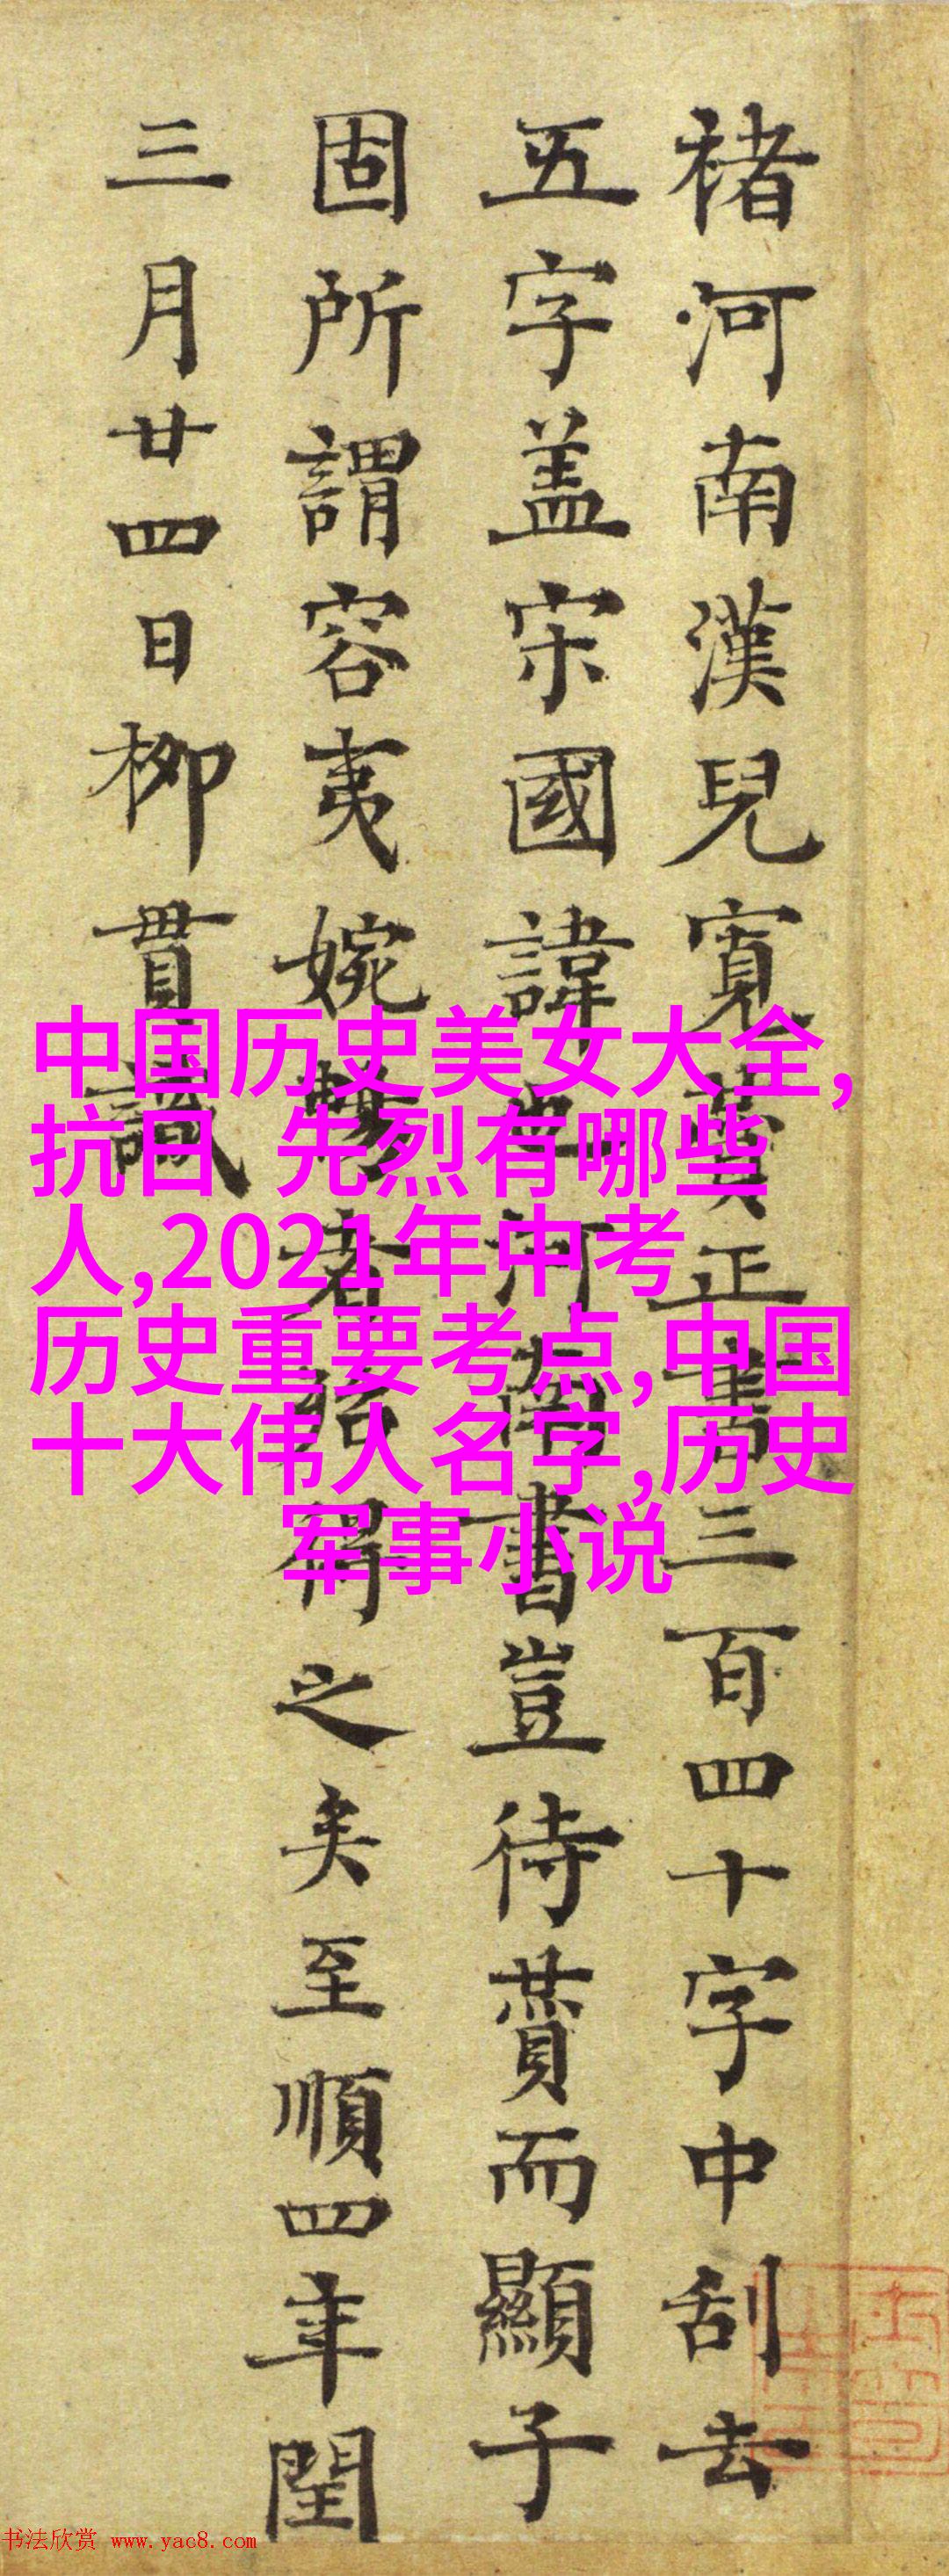 褚河南漢兒寬賛正書三百四十字中刮去
五字盖宋國諱也河南書豈待賛而顯子
固所謂容夷婉者之矣至順四年閏
三月廿四日柳貫識
中国历史美女大全,
抗日 先烈有哪些
人,2021年中考
历史重要考点,中国
十大伟人名字,历史
军事小说
书法欣赏 www.yac8.com